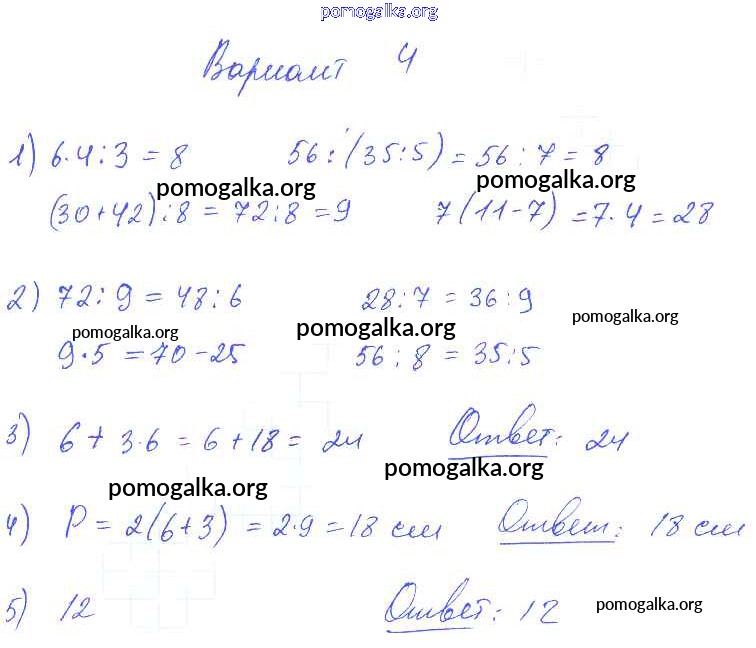 pomogalka.org
Вариант 4
1) 6·4:3 = 8 56:(35:5) = 56:7 = 8
pomogalka.org pomogalka.org
(30+42):8 = 72:8 = 9 7(11-7) = 7·4 = 28
2) 72:9 = 48:6 28:7 = 36:9
pomogalka.org pomogalka.org pomogalka.org
9·5 = 70-25 56:8 = 35:5
3) 6 + 3·6 = 6+18 = 24 Ответ: 24
pomogalka.org pomogalka.org
4) P = 2(6+3) = 2·9 = 18 см Ответ: 18 см
5) 12 Ответ: 12 pomogalka.org